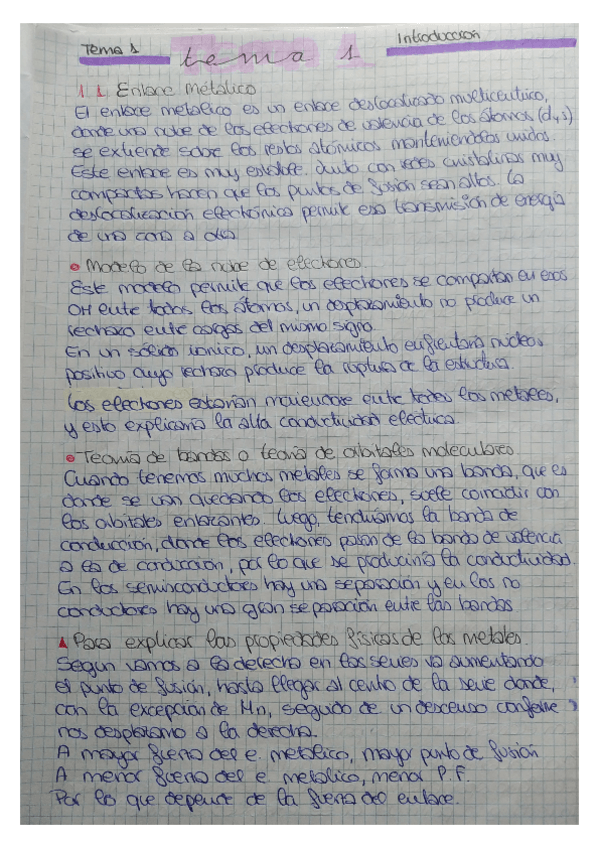 Tema 1
tema 1
Introducción
1.1 Enlace metálico
El enlace metálico es un enlace deslocalizado multicéntrico,
donde una nube de los electrones de valencia de los átomos (d y s)
se extiende sobre los restos atómicos manteniéndolos unidos.
Este enlace es muy estable. Junto con redes cristalinas muy
compactas hacen que los puntos de fusión sean altos. La
deslocalización electrónica permite esa transmisión de energía
de una cara a otra
• Modelo de la nube de electrones.
Este modelo permite que los electrones se comportan en esos
OH entre todos los átomos, un desplazamiento no produce un
rechazo entre cargas del mismo signo.
En un sólido iónico, un desplazamiento enfrentaría núcleos
positivo cuyo rechazo produce la ruptura de la estructura.
Los electrones estarían moviendose entre todos los metales,
y esto explicaría la alta conductividad eléctrica.
• Teoría de bandas o teoría de orbitales moleculares.
Cuando tenemos muchos metales se forma una banda, que es
donde se van quedando los electrones, suele coincidir con
los orbitales enlazantes. Luego, tendríamos la banda de
conducción, donde los electrones pasan de la banda de valencia
a la de conducción, por lo que se produciría la conductividad.
En los semiconductores hay una separación y en los no
conductores hay una gran separación entre las bandas
▲ Para explicar las propiedades físicas de los metales.
Según vamos a la derecha en las series va aumentando
el punto de fusión, hasta llegar al centro de la serie donde,
con la excepción de Mn, seguido de un descenso conforme
nos desplazamo a la derecha.
A mayor fuerza del e. metálico, mayor punto de fusión
A menor fuerza del e. metálico, menor P.F.
Por lo que depende de la fuerza del enlace.